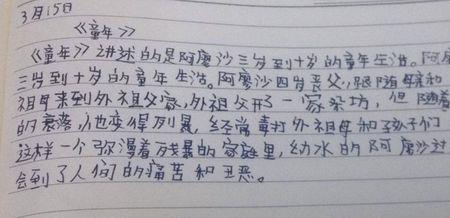 3月15日
《童年》
《童年》讲述的是阿廖沙三岁到十岁的童年生活。阿廖
三岁到十岁的童年生活。阿廖沙四岁丧父,跟随母亲和
祖母来到外祖父家,外祖父开了一家染坊,但随着
的衰落,他变得残暴,经常毒打外祖母和孩子们
这样一个弥漫着残暴的家庭里,幼小的阿廖沙过
会到了人间的痛苦和丑恶。